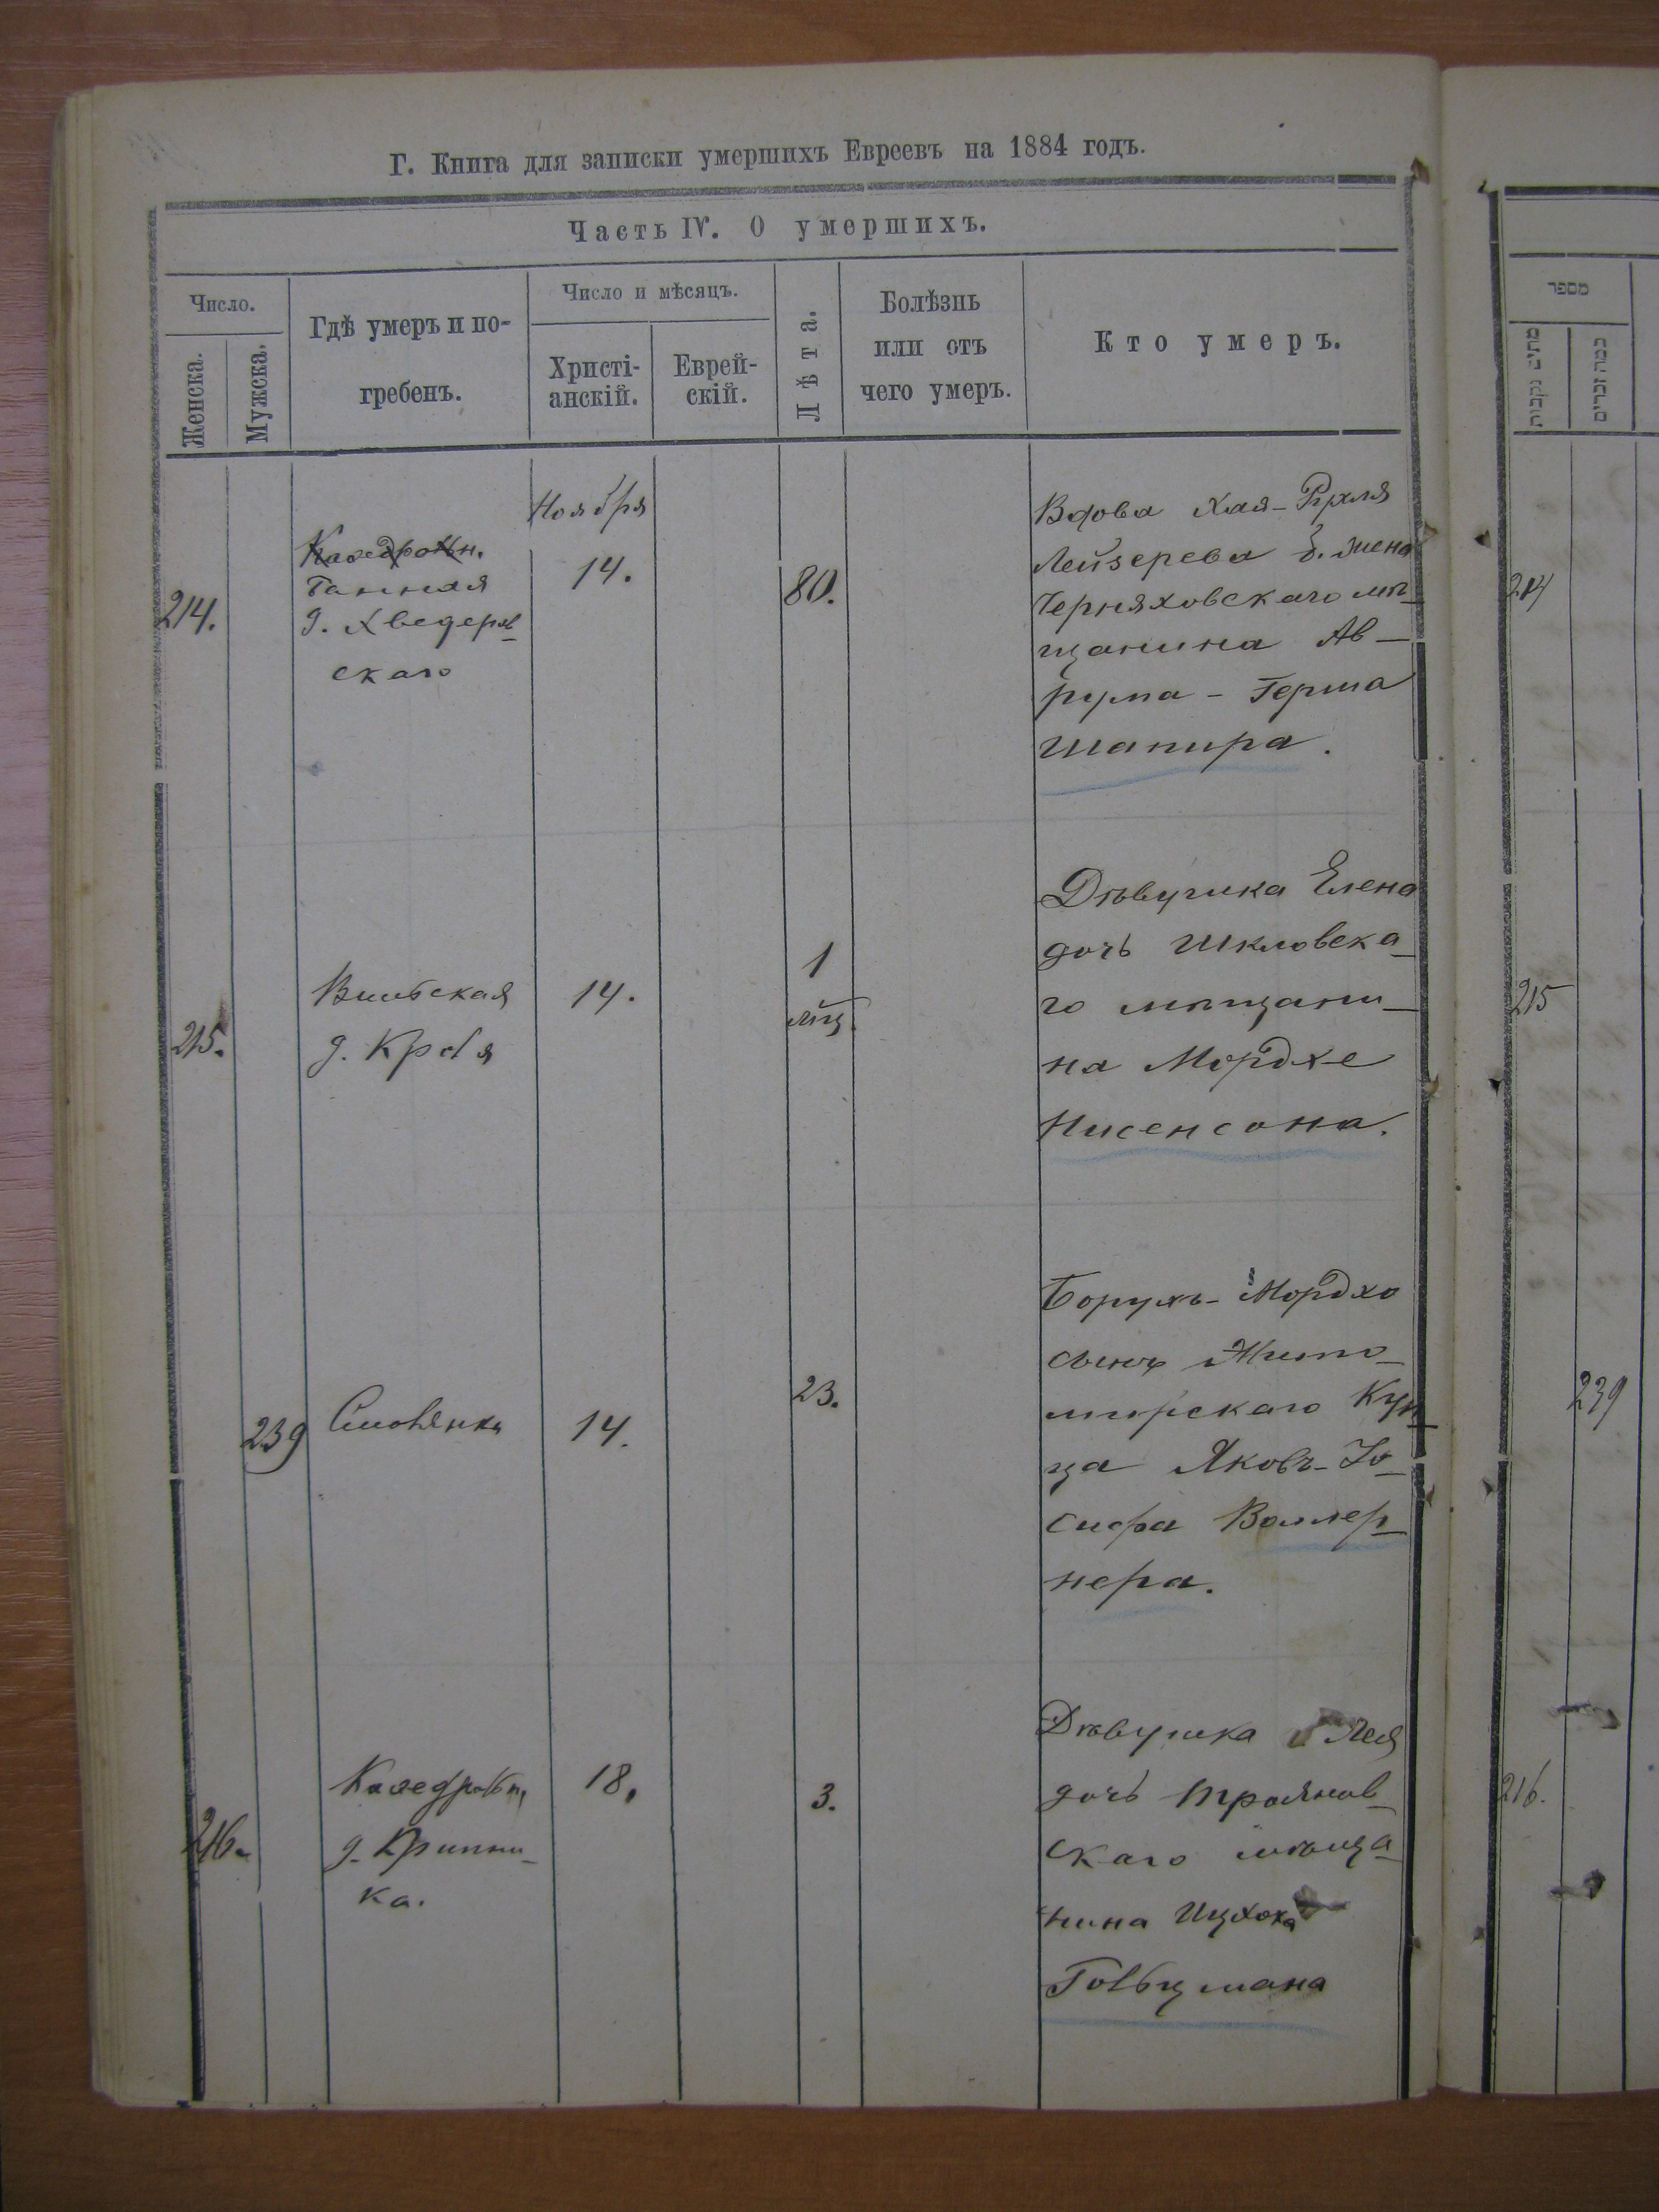 Г. Книга для записки умершихъ Евреевъ на 1884 годъ.
Часть IV. О умершихъ.
Число.
Женска.
Мужска.
Гдѣ умеръ и по-
гребенъ.
Число и мѣсяцъ.
Христі-
анскій.
Еврей-
скій.
Лѣта.
Болѣзнь
или отъ
чего умеръ.
Кто умеръ.
מספר
214.
Каѳедральн.
д. Хведеров
скаго
Ноября
14.
80.
Вдова Хая-Рухля
Лейзерева б. жена
Черняховскаго мѣ-
щанина Ав-
рума-Герша
Шапира.
214
215.
д. Кроля
14.
1
мѣц.
Дѣвушка Елена
дочь Шкловска-
го мѣщани-
на Мордхе
Нисенсона.
215
239
Смолянка
14.
23.
Борухъ-Мордхо
сынъ Жито-
мирскаго Куп-
ца Яковъ-Іо-
сифа
нера.
239
216.
Каѳедральн.
д. Крипни-
ка.
18.
3.
Дѣвушка Лея
дочь Трояновскаго
скаго мѣща-
нина Ицхока
Гольцмана
216.